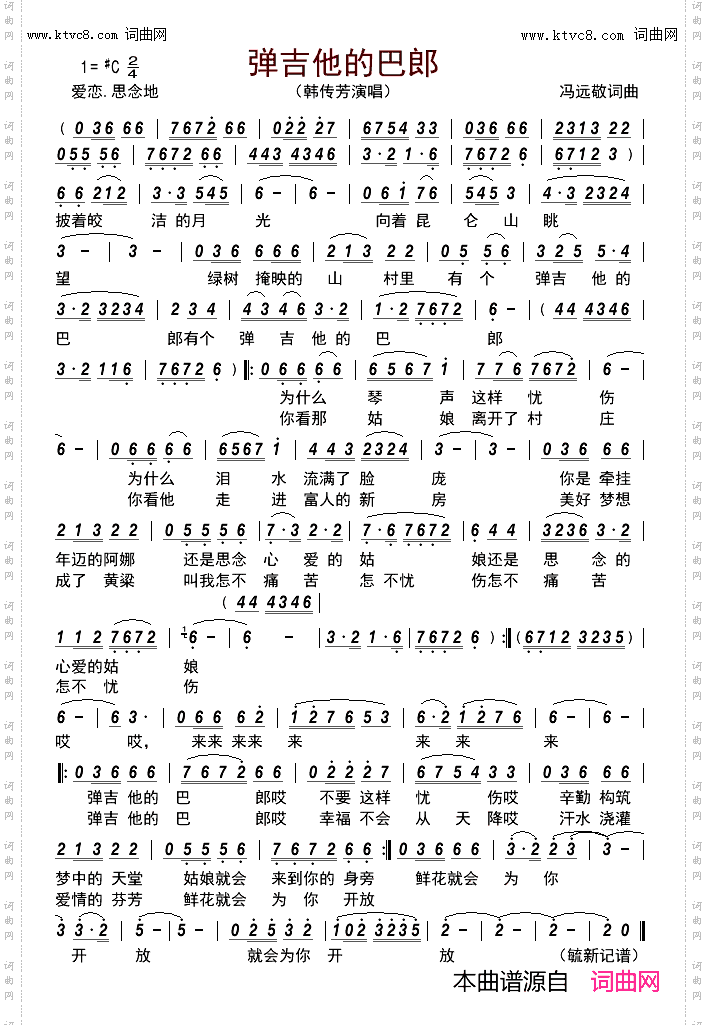 www.ktvc8.com 词曲网 www.ktvc8.com 词曲网
1=#C 2/4 弹吉他的巴郎
爱恋.思念地 （韩传芳演唱） 冯远敬词曲
( 0 36 66 | 7672 66 | 022 27 | 6754 33 | 036 66 | 2313 22 |
055 56 | 7672 66 | 443 4346 | 3·2 1·6 | 7672 6 | 6712 3 )
6 6 212 | 3·3 545 | 6 - | 6 - | 0 6 1 76 | 545 3 | 4·3 2324 |
披着皎 洁的月 光 向着昆 仑 山 眺
3 - | 3 - | 0 3 6 6 6 6 | 2 1 3 2 2 | 0 5 5 6 | 3 2 5 5·4 |
望 绿树 掩映的 山 村里 有 个 弹吉 他的
3·2 3234 | 2 3 4 | 4 3 4 6 3·2 | 1·2 7672 | 6 - | ( 44 4346 |
巴 郎有个 弹 吉 他的 巴 郎
3·2 116 | 7672 6 ) ‖: 0 6 6 6 6 | 6 5 6 7 1 | 7 7 6 7672 | 6 - |
为什么 琴 声 这样 忧 伤
你看那 姑 娘 离开了 村 庄
6 - | 0 6 6 6 6 | 6567 1 | 4 4 3 2324 | 3 - | 3 - | 0 3 6 6 6 |
为什么 泪 水 流满了 脸 庞 你是 牵挂
你看他 走 进 富人的 新 房 美好 梦想
2 1 3 2 2 | 0 5 5 5 6 | 7·3 2·2 | 7·6 7672 | 6 4 4 | 3236 3·2 |
年迈的阿娜 还是思念 心 爱 的 姑 娘还是 思 念的
成了 黄粱 叫我怎不 痛 苦 怎 不忧 伤怎不 痛 苦
( 44 4346 |
1 1 2 7672 | 6 - | 6 - | 3·2 1·6 | 7672 6 ) :‖ ( 6712 3235 ) |
心爱的姑 娘
怎不 忧 伤
6 - | 6 3· | 0 6 6 6 2 | 1 2 7 6 5 3 | 6·2 1 2 7 6 | 6 - | 6 - |
哎 哎， 来来 来来 来 来 来 来
‖: 0 3 6 6 6 | 7 6 7 2 6 6 | 0 2 2 2 7 | 6 7 5 4 3 3 | 0 3 6 6 6 |
弹吉 他的 巴 郎哎 不要 这样 忧 伤哎 辛勤 构筑
弹吉 他的 巴 郎哎 幸福 不会 从 天 降哎 汗水 浇灌
2 1 3 2 2 | 0 5 5 5 6 | 7 6 7 2 6 6 :‖ 0 3 6 6 6 | 3·2 | 2 3 | 3 - |
梦中的 天堂 姑娘就会 来到你的 身旁 鲜花就会 为 你
爱情的 芬芳 鲜花就会 为 你 开放
3 3·2 | 5 - | 5 - | 0 2 5 3 2 | 102 3235 | 2 - | 2 - | 2 0 ‖
开 放 就会为你 开 放 （毓新记谱）
本曲谱源自 词曲网